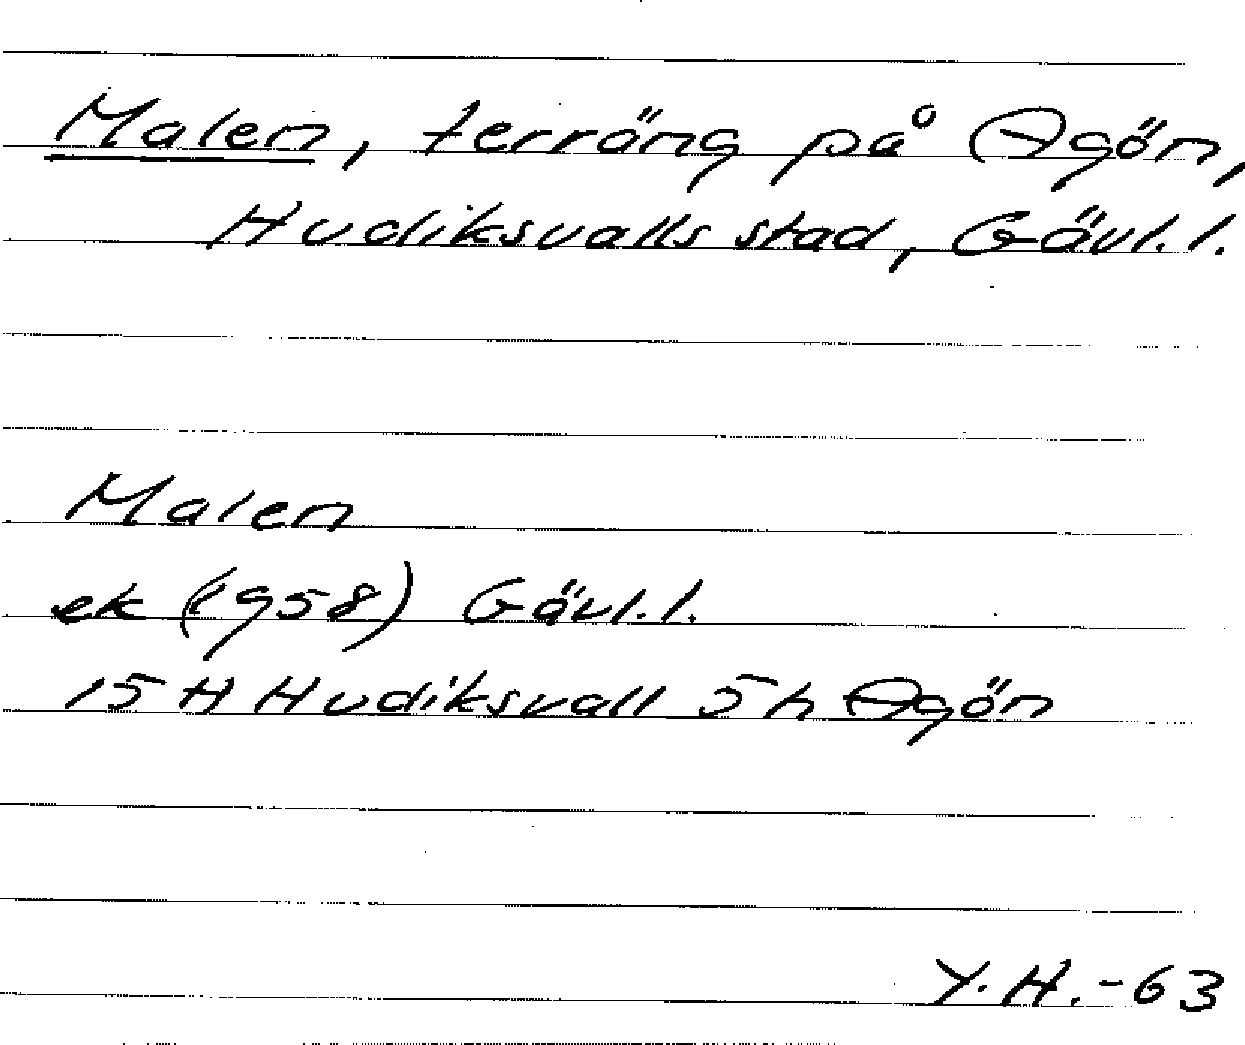 Malen, terräng på Agön,
Hudiksvalls stad, Gävl.l.
Malen
ek (1958) Gävl.l.
15 H Hudiksvall 5h Agön
Y.H.-63